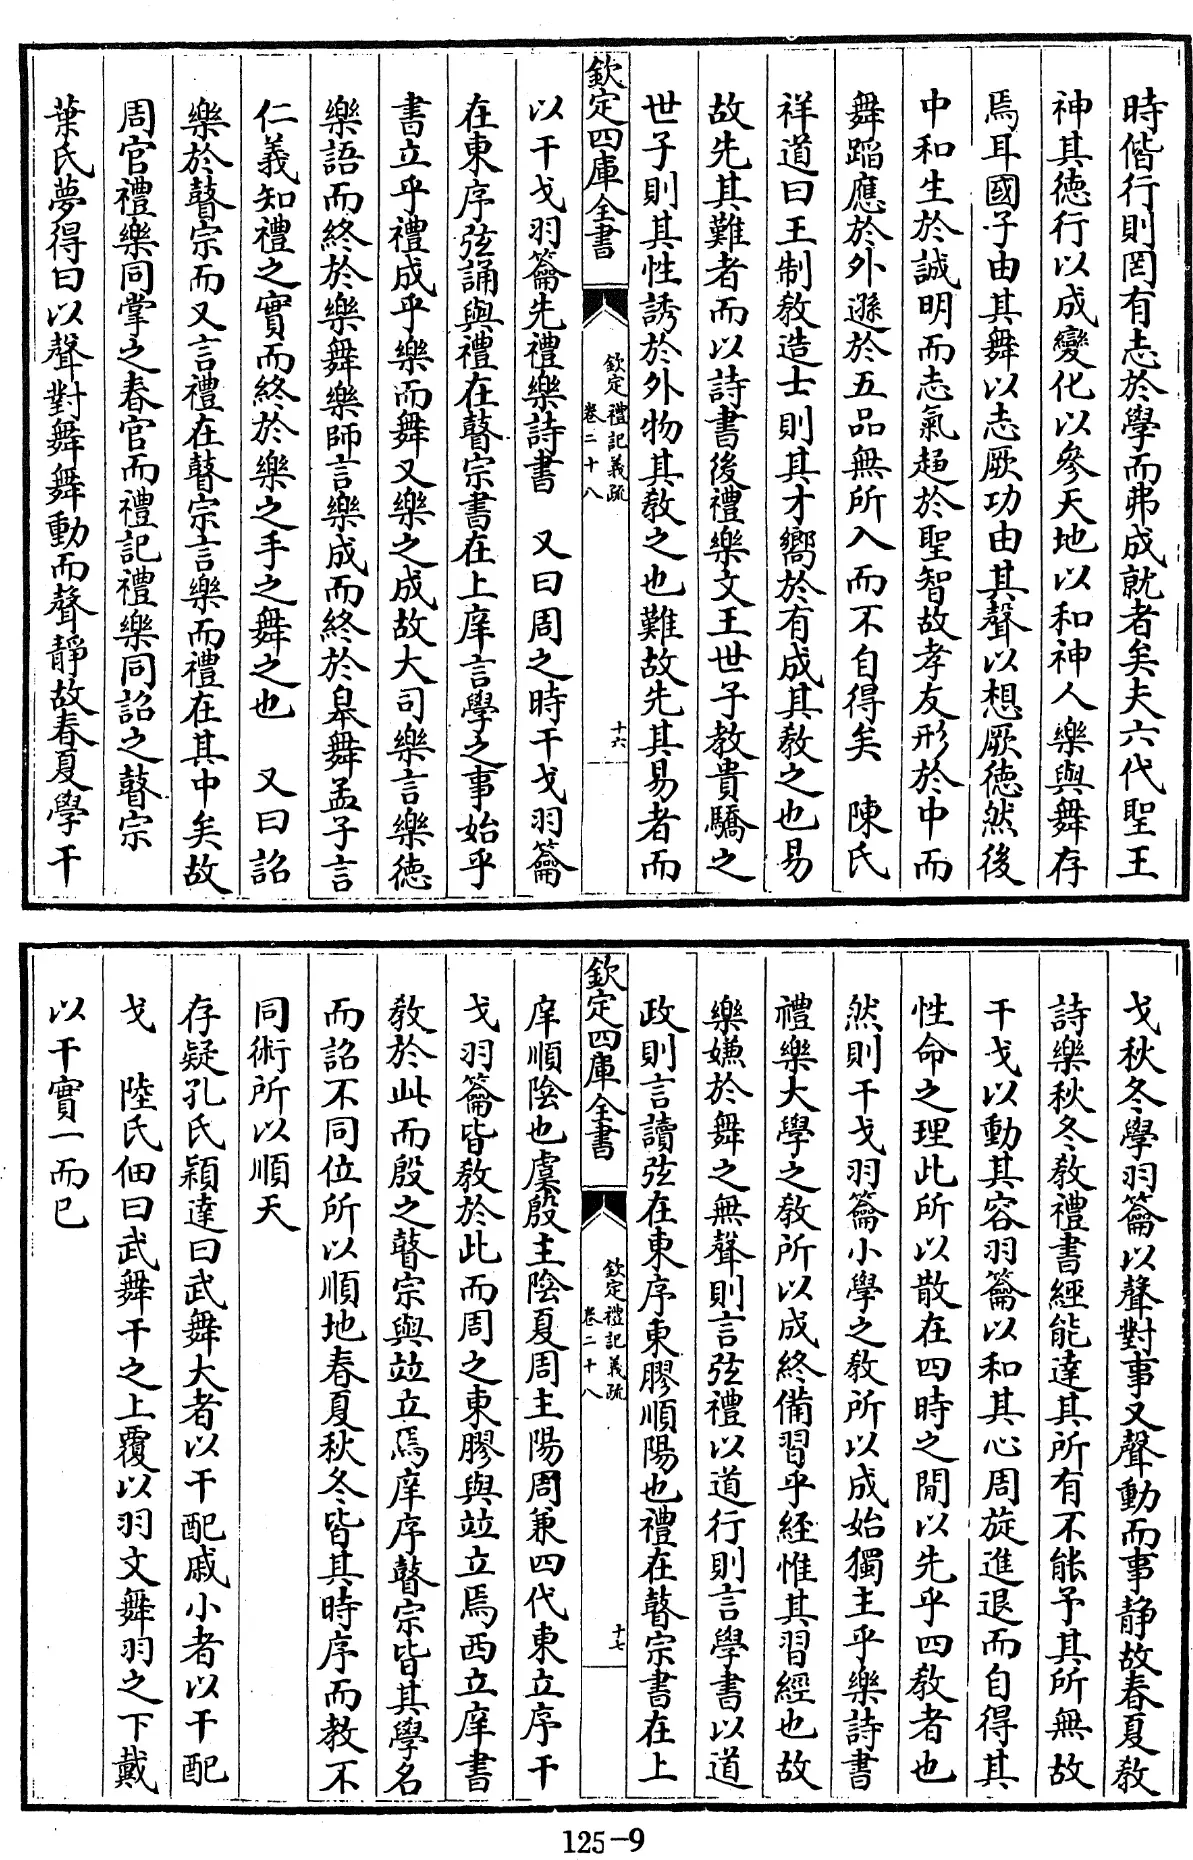 時偕行則罔有志於學而弗成就者矣夫六代聖王
神其徳行以成變化以參天地以和神人樂與舞存
焉耳國子由其舞以志厥功由其聲以想厥徳然後
中和生於誠明而志氣趋於聖智故孝友形於中而
舞蹈應於外遜於五品無所入而不自得矣　陳氏
祥道曰王制敎造士則其才嚮於有成其敎之也易
故先其難者而以詩書後禮樂文王世子教貴驕之
世子則其性誘於外物其敎之也難故先其易者而
欽定四庫全書
欽定禮記義疏
卷二十八
十六
以干戈羽籥先禮樂詩書　又曰周之時干戈羽籥
在東序弦誦與禮在瞽宗書在上庠言學之事始乎
書立乎禮成乎樂而舞又樂之成故大司樂言樂徳
樂語而終於樂舞樂師言樂成而終於皋舞孟子言
仁義知禮之實而終於樂之手之舞之也　又曰詔
樂於瞽宗而又言禮在瞽宗言樂而禮在其中矣故
周官禮樂同掌之春官而禮記禮樂同詔之瞽宗
葉氏夢得曰以聲對舞舞動而聲靜故春夏學干
戈秋冬學羽籥以聲對事又聲動而事静故春夏敎
詩樂秋冬敎禮書經能達其所有不能予其所無故
干戈以動其容羽籥以和其心周旋進退而自得其
性命之理此所以散在四時之閒以先乎四敎者也
然則干戈羽籥小學之敎所以成始獨主乎樂詩書
禮樂大學之敎所以成終備習乎經惟其習經也故
樂嫌於舞之無聲則言弦禮以道行則言學書以道
政則言讀弦在東序東膠順陽也禮在瞽宗書在上
欽定四庫全書
欽定禮記義疏
卷二十八
十七
庠順陰也虞殷主陰夏周主陽周兼四代東立序干
戈羽籥皆敎於此而周之東膠與竝立焉西立庠書
敎於此而殷之瞽宗與竝立焉庠序瞽宗皆其學名
而詔不同位所以順地春夏秋冬皆其時序而教不
同術所以順天
存疑孔氏穎達曰武舞大者以干配戚小者以干配
戈　陸氏佃曰武舞干之上覆以羽文舞羽之下戴
以干實一而已
125-9